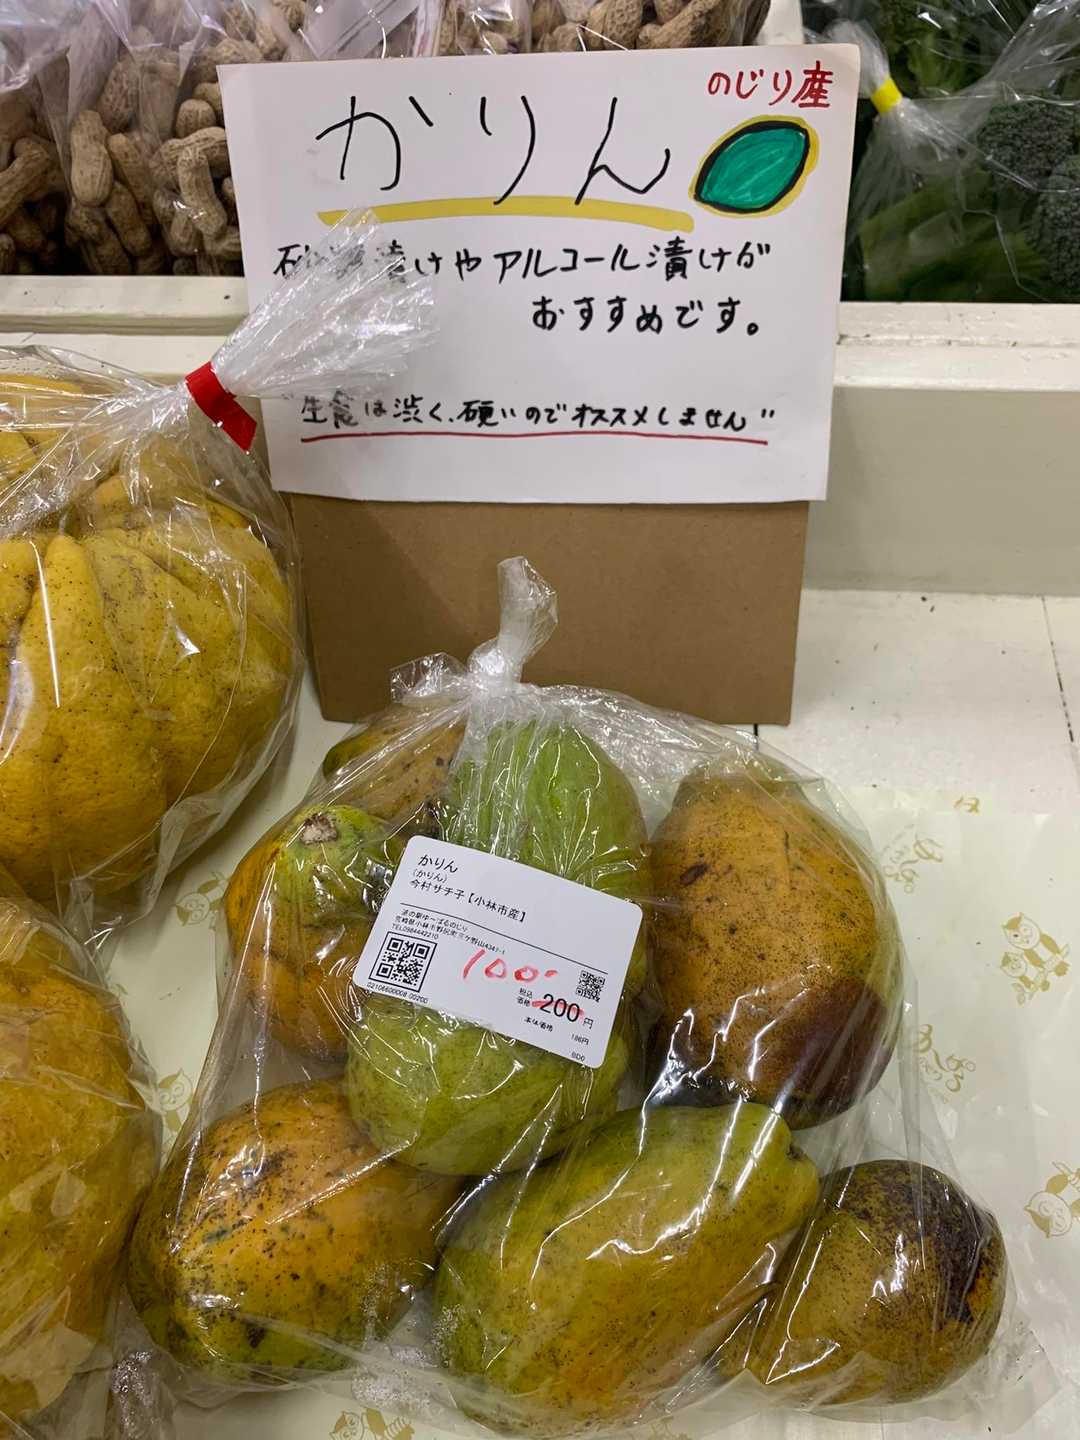 のじり産
かりん
砂糖漬けやアルコール漬けが
おすすめです。
"生食は渋く、硬いのでオススメしません"
かりん
(かりん)
今村サチ子【小林市産】
道の駅ゆ〜ぱるのじり
宮崎県小林市野尻町三ケ野山4347-1
TEL0984442210
100-
税込
価格 200円
本体価格 186円
02106600008 00200
BD0